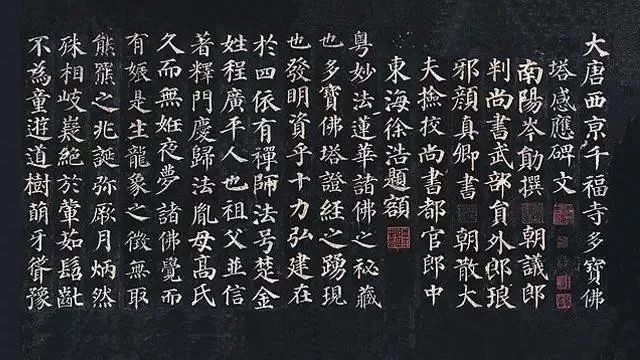 大唐西亰千福寺多寶佛
塔感應碑文
南陽岑勛撰 朝議郎
判尚書武部負外郎琅
邪顏真卿書 朝散大
夫撿挍尚書都官郎中
東海徐浩題額
粵妙法蓮華諸佛之秘藏
也多寶佛塔證經之踴現
也發明資乎十力弘建在
於四依有禪師法号楚金
姓程廣平人也祖父並信
著釋門慶歸法胤母高氏
久而無姙夜夢諸佛覺而
有娠是生龍象之徵無取
熊羆之兆誕弥厥月炳然
殊相岐嶷絕於葷茹髫齔
不為童遊道樹萌牙聳豫